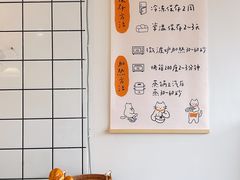 保存方法
冷冻保存2周
常温保存2-3天
加热方法
微波炉加热30-40秒
烤箱200度2-3分钟
蒸锅上汽后
蒸30-40秒